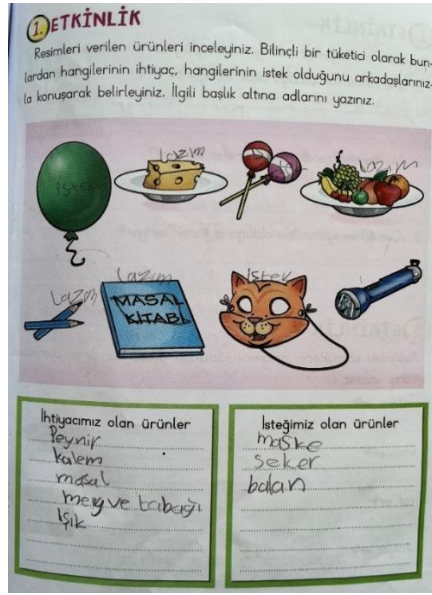 1. ETKİNLİK
Resimleri verilen ürünleri inceleyiniz. Bilinçli bir tüketici olarak bun-
lardan hangilerinin ihtiyaç, hangilerinin istek olduğunu arkadaşlarınız-
la konuşarak belirleyiniz. İlgili başlık altına adlarını yazınız.
lazım
lazım
lazım
lazım
istek
MASAL
KİTABI
İhtiyacımız olan ürünler
Peynir
kalem
masal
meyve tabağı
Işık
İsteğimiz olan ürünler
maske
şeker
balan